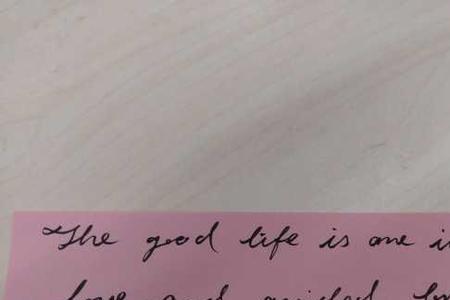 The good life is one i
love and guided